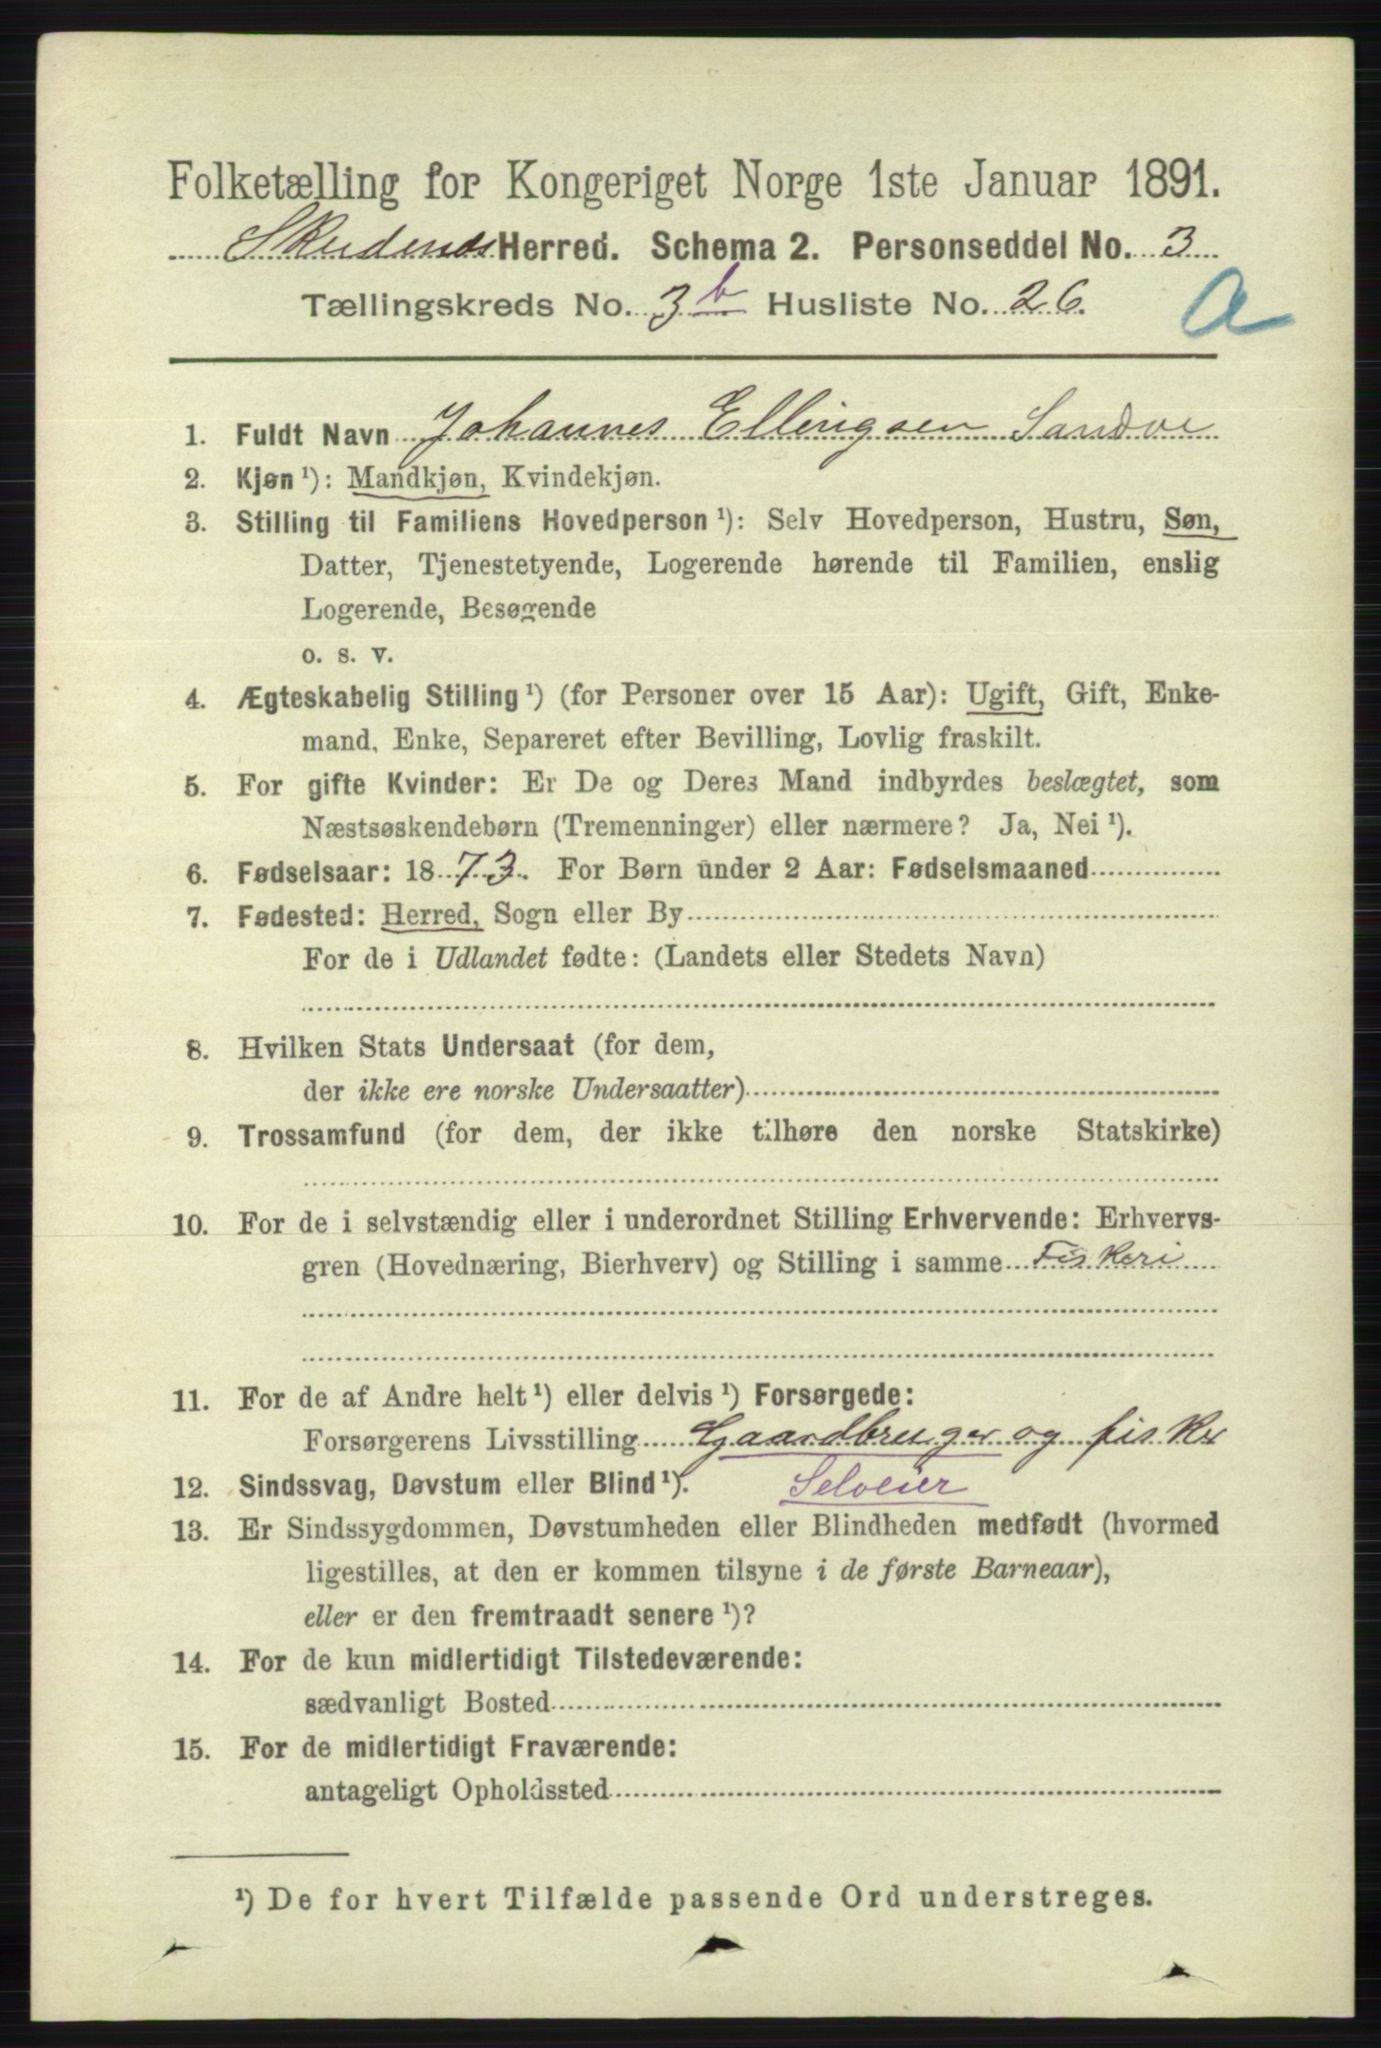 Folketælling for Kongeriget Norge 1ste Januar 1891.
Skudenes Herred. Schema 2. Personseddel No. 3
Tællingskreds No. 3 b Husliste No. 26.
a
1. Fuldt Navn Johannes Ellingsen Sandve
2. Kjøn ¹): Mandkjøn, Kvindekjøn.
3. Stilling til Familiens Hovedperson ¹): Selv Hovedperson, Hustru, Søn,
Datter, Tjenestetyende, Logerende hørende til Familien, enslig
Logerende, Besøgende
o. s. v.
4. Ægteskabelig Stilling ¹) (for Personer over 15 Aar): Ugift, Gift, Enke-
mand, Enke, Separeret efter Bevilling, Lovlig fraskilt.
5. For gifte Kvinder: Er De og Deres Mand indbyrdes beslægtet, som
Næstsøskendebørn (Tremenninger) eller nærmere? Ja, Nei ¹).
6. Fødselsaar: 1873. For Børn under 2 Aar: Fødselsmaaned
7. Fødested: Herred, Sogn eller By
For de i Udlandet fødte: (Landets eller Stedets Navn)
8. Hvilken Stats Undersaat (for dem,
der ikke ere norske Undersaatter)
9. Trossamfund (for dem, der ikke tilhøre den norske Statskirke)
10. For de i selvstændig eller i underordnet Stilling Erhvervende: Erhvervs-
gren (Hovednæring, Bierhverv) og Stilling i samme Fiskeri
11. For de af Andre helt ¹) eller delvis ¹) Forsørgede:
Forsørgerens Livsstilling Gaardbruger og fisker
12. Sindssvag, Døvstum eller Blind ¹). Selveier
13. Er Sindssygdommen, Døvstumheden eller Blindheden medfødt (hvormed
ligestilles, at den er kommen tilsyne i de første Barneaar),
eller er den fremtraadt senere ¹)?
14. For de kun midlertidigt Tilstedeværende:
sædvanligt Bosted
15. For de midlertidigt Fraværende:
antageligt Opholdssted
¹) De for hvert Tilfælde passende Ord understreges.